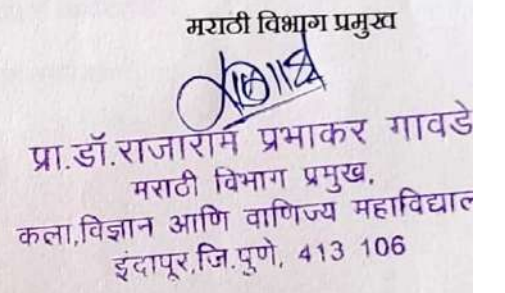 मराठी विभाग प्रमुख
प्रा.डॉ.राजाराम प्रभाकर गावडे
मराठी विभाग प्रमुख,
कला,विज्ञान आणि वाणिज्य महाविद्याल
इंदापूर,जि.पुणे, 413 106